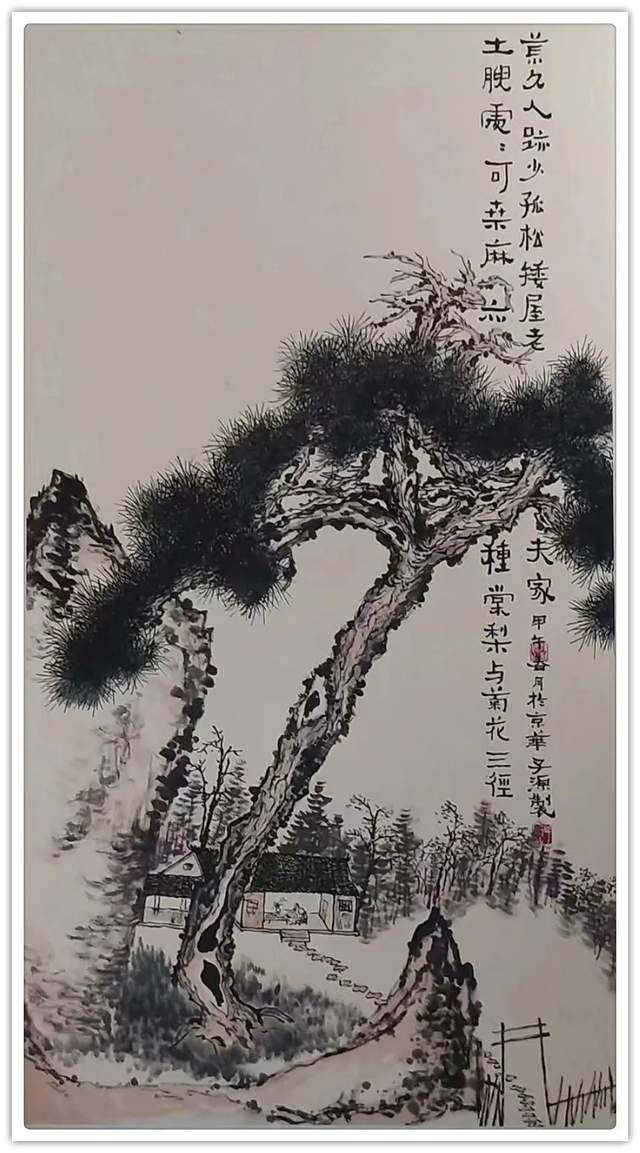 土腴處〻可桑麻亦種棠梨与菊花三徑
荒久人跡少孤松矮屋老夫家甲午春月於京華子源製